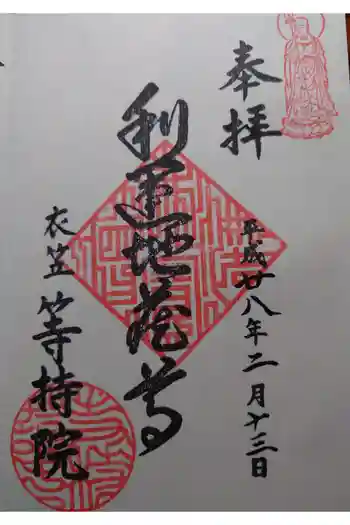 奉拝
平成廿八年二月十三日
利運地蔵尊
衣笠 等持院